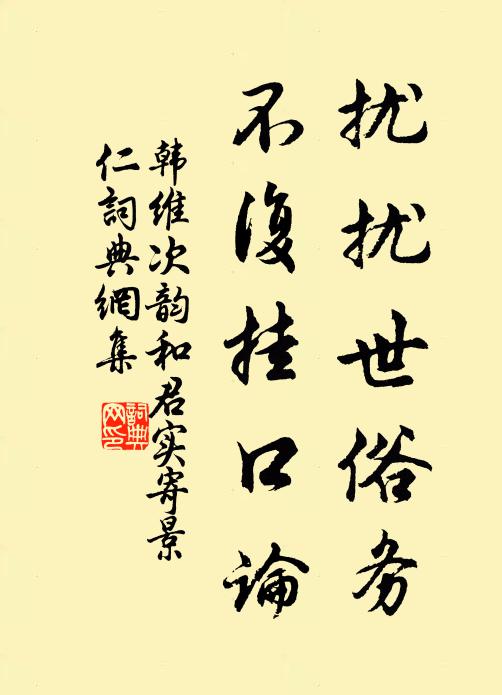 扰扰世俗务
不復挂口論
韩维次韵和君实寄景
仁詞典網集
詞典
网印